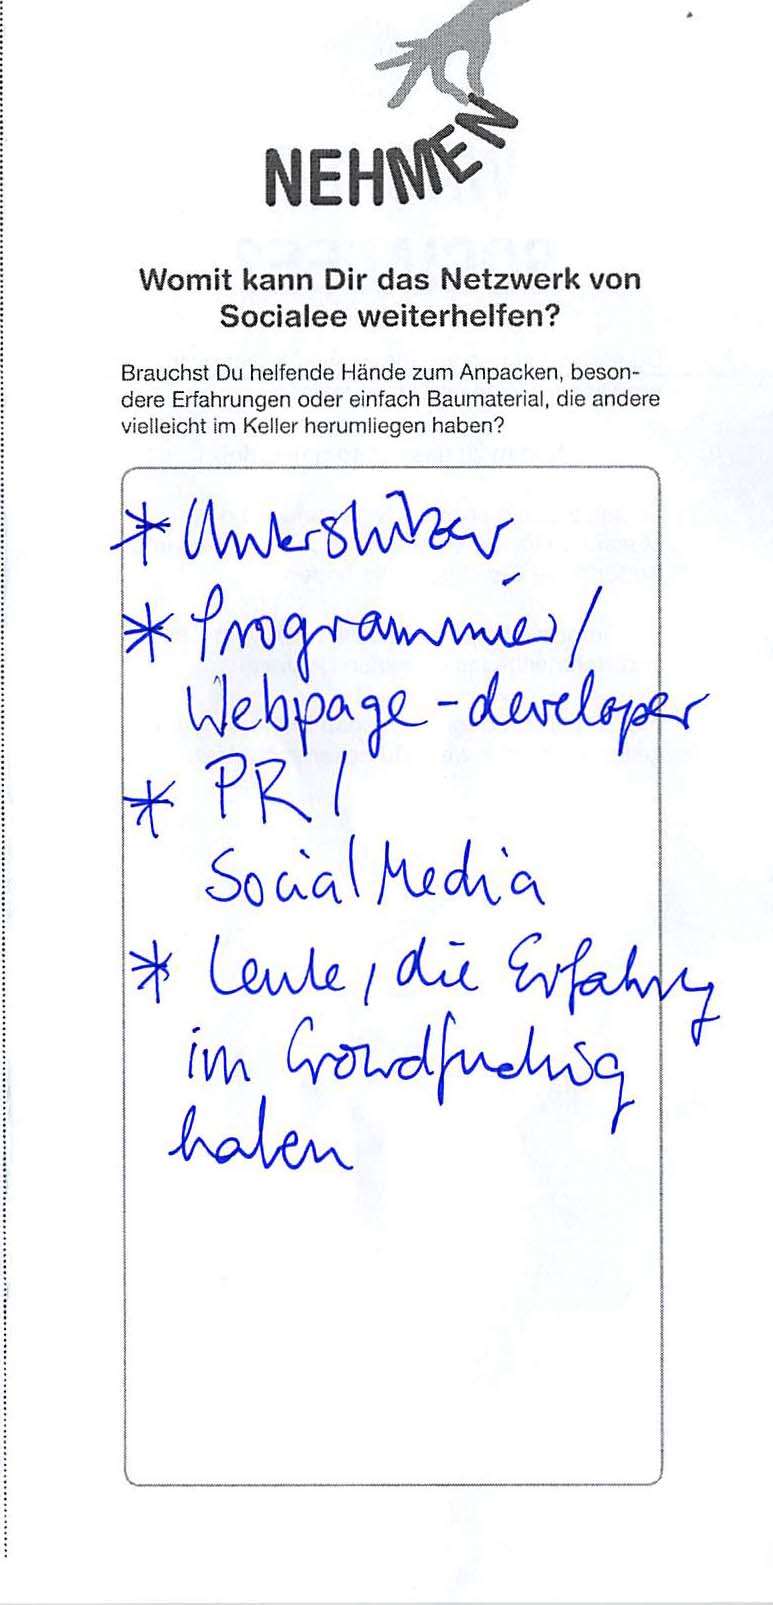 NEHMEN
Womit kann Dir das Netzwerk von
Socialee weiterhelfen?
Brauchst Du helfende Hände zum Anpacken, beson-
dere Erfahrungen oder einfach Baumaterial, die andere
vielleicht im Keller herumliegen haben?
* Unterstützer
* Programmier/
Webpage-developer
* PR /
Social Media
* Leute, die Erfahrung
im Crowdfunding
haben